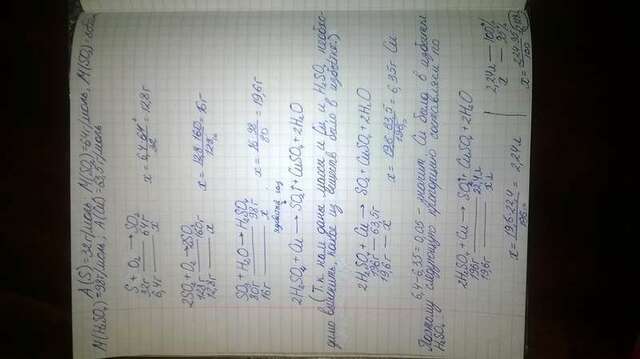 A(S)=32г/моль, M(SO₂)=64г/моль, M(SO₃)=80г/моль
M(H₂SO₄)=98г/моль. A(Cu)=63,5г/моль
S + O₂ → SO₂
32г 64г
6,4г x
x = 6,4·64/32 = 12,8г
2SO₂ + O₂ → 2SO₃
128г 160г
12,8г x
x = 12,8·160/128 = 16г
SO₃ + H₂O → H₂SO₄
80г 98г
16г x
x = 16·98/80 = 19,6г
2H₂SO₄ + Cu → SO₂↑ + CuSO₄ + 2H₂O
(Т.к. нам даны массы и Cu и H₂SO₄ необхо-
димо выяснить, какое из веществ было в избытке.)
2H₂SO₄ + Cu → SO₂ + CuSO₄ + 2H₂O
196г — 63,5г
19,6г — x
x = 19,6·63,5/196 = 6,35г Cu
6,4-6,35=0,05 - значит Cu была в избытке
Поэтому следующую пропорцию составляем по
H₂SO₄.
2H₂SO₄ + Cu → SO₂↑ + CuSO₄ + 2H₂O
196г 22,4л
19,6г x л
x = 19,6·22,4/196 = 2,24л
2,24л — 100%
x =